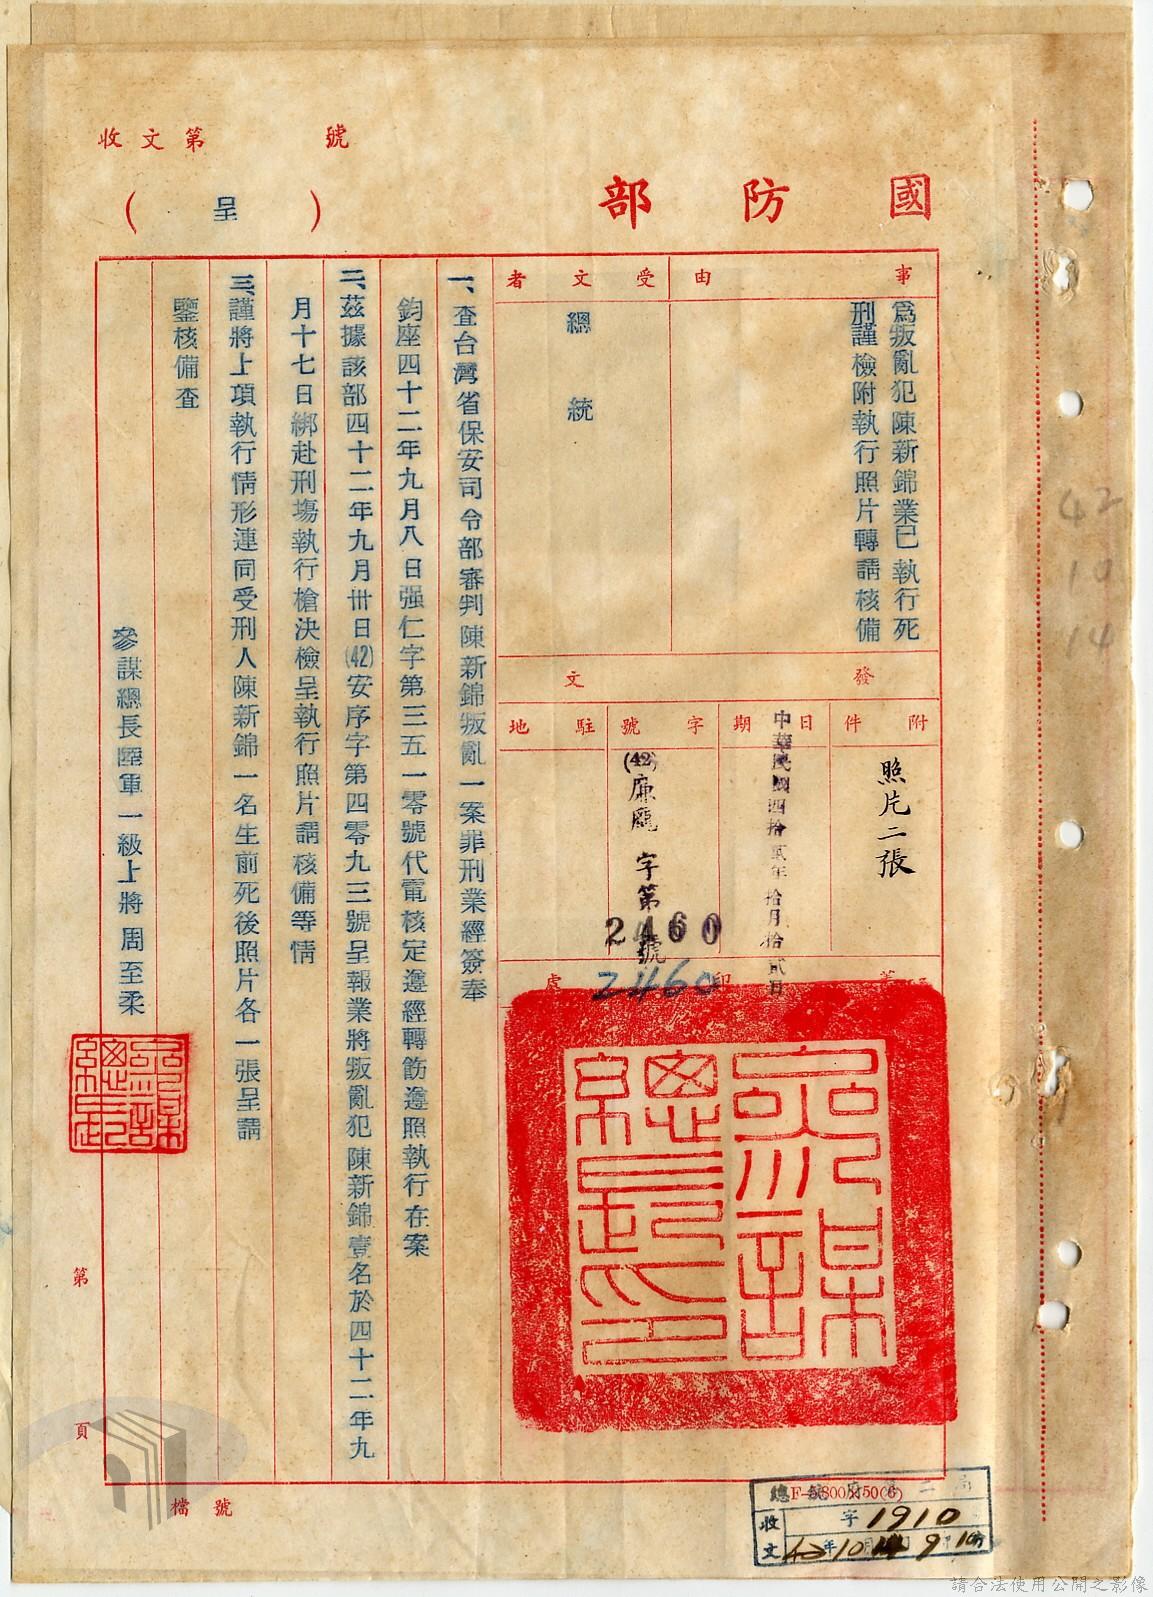 收文第　　號
國防部
（呈）
事由
為叛亂犯陳新錦業已執行死
刑謹檢附執行照片轉請核備
受文者
總統
發文
附件
照片二張
日期
中華民國四拾貳年拾月拾貳日
字號
(42)廉龐字第2460號
2460
駐地
蓋印處
參謀總長之印
一、查台灣省保安司令部審判陳新錦叛亂一案罪刑業經簽奉
鈞座四十二年九月八日强仁字第三五一零號代電核定遵經轉飭遵照執行在案
二、茲據該部四十二年九月卅日(42)安序字第四零九三號呈報業將叛亂犯陳新錦壹名於四十二年九
月十七日綁赴刑場執行槍決檢呈執行照片請核備等情
三、謹將上項執行情形連同受刑人陳新錦一名生前死後照片各一張呈請
鑒核備查
參謀總長陸軍一級上將周至柔
第　頁
檔號
42
10
14
F—5800×50(6)
收文
字1910
42年10月14日9時10分
請合法使用公開之影像